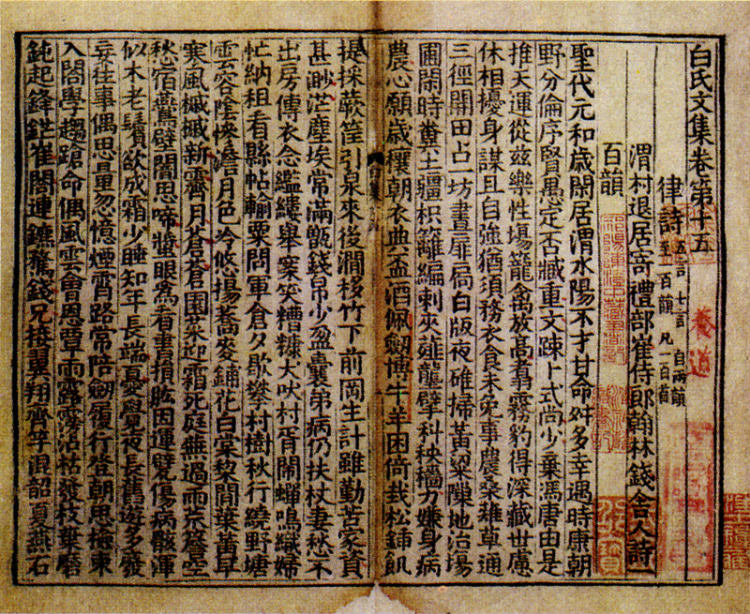 白氏文集卷第十五
律詩 五言 七言 自兩韻
至一百韻 凡一百首
渭村退居寄禮部崔侍郎翰林錢舍人詩一
百韻
聖代元和歳閑居渭水陽不才甘命舛多幸遇時康朝
野分倫序賢愚定否臧重文踈卜式尚少棄馮唐由是
推天運從兹樂性場籠禽放高翥霧豹得深藏世慮
休相擾身謀且自強猶須務衣食未免事農桑薙草通
三徑開田占一坊晝扉扃白版夜碓掃黃粱隙地治場
圃閑時糞土疆枳籬編刺夾薤壟擘科秧穡力嫌身病
農心願歳穰朝衣典盃酒佩劒博牛羊困倚栽松鍤飢
提採蕨筐引泉來後澗移竹下前岡生計雖勤苦家資
甚渺茫塵埃常滿甑錢帛少盈囊弟病仍扶杖妻愁不
出房傳衣念繿縷舉案笑糟糠犬吠村胥鬧蟬鳴織婦
忙納租看縣帖輸粟問軍倉夕歇攀村樹秋行繞野塘
雲容陰慘澹月色冷悠揚蕎麥鋪花白棠梨間葉黃早
寒風摵摵新霽月蒼蒼園菜迎霜死庭蕪過雨荒簷空
愁宿鷰壁闇思啼螿眼爲看書損肱因運甓傷病骸渾
似木老鬢欲成霜少睡知年長端憂覺夜長舊遊多發
忘往事偶思量忽憶煙霄路常陪劒履行登朝思檢束
入閤學趨蹌命偶風雲會恩覃雨露霶沾枯發枝葉磨
鈍起鋒鋩崔閤連鑣騖錢兄接翼翔齊竽混韶夏燕石
養道